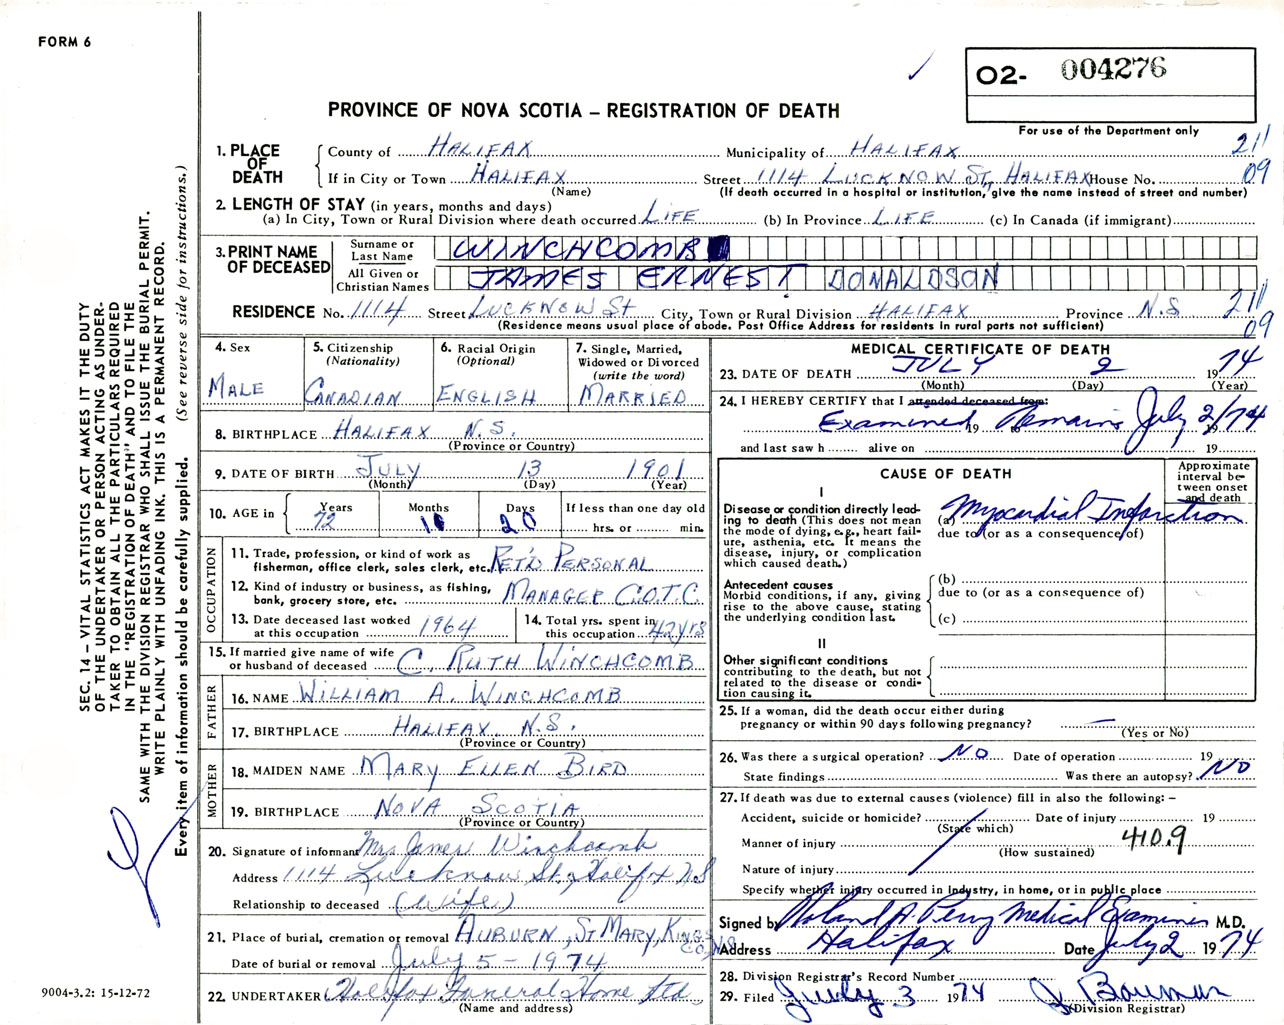 FORM 6
O2- 004276
PROVINCE OF NOVA SCOTIA – REGISTRATION OF DEATH
For use of the Department only
1. PLACE OF DEATH
County of HALIFAX Municipality of HALIFAX 211
If in City or Town HALIFAX Street 1114 LUCKNOW ST, HALIFAX House No. 09
(Name) (If death occurred in a hospital or institution, give the name instead of street and number)
2. LENGTH OF STAY (in years, months and days)
(a) In City, Town or Rural Division where death occurred LIFE (b) In Province LIFE (c) In Canada (if immigrant)
3. PRINT NAME OF DECEASED
Surname or Last Name WINCHCOMB
All Given or Christian Names JAMES ERNEST DONALDSON
RESIDENCE No. 1114 Street LUCKNOW St City, Town or Rural Division HALIFAX Province N.S 211
09
(Residence means usual place of abode. Post Office Address for residents in rural parts not sufficient)
4. Sex
MALE
5. Citizenship (Nationality)
CANADIAN
6. Racial Origin (Optional)
ENGLISH
7. Single, Married, Widowed or Divorced (write the word)
MARRIED
8. BIRTHPLACE HALIFAX N.S.
(Province or Country)
9. DATE OF BIRTH JULY 13 1901
(Month) (Day) (Year)
10. AGE in Years Months Days If less than one day old
72 11 20 hrs. or min.
OCCUPATION
11. Trade, profession, or kind of work as
fisherman, office clerk, sales clerk, etc. RET'D PERSONAL
12. Kind of industry or business, as fishing,
bank, grocery store, etc. MANAGER C.O.T.C.
13. Date deceased last worked
at this occupation 1964
14. Total yrs. spent in
this occupation 42 yrs
15. If married give name of wife
or husband of deceased C. RUTH WINCHCOMB
FATHER
16. NAME WILLIAM A. WINCHCOMB
17. BIRTHPLACE HALIFAX N.S.
(Province or Country)
MOTHER
18. MAIDEN NAME MARY ELLEN BIRD
19. BIRTHPLACE NOVA SCOTIA
(Province or Country)
20. Signature of informant Mrs James Winchcomb
Address 1114 Lucknow St., Halifax N.S
Relationship to deceased (Wife)
21. Place of burial, cremation or removal AUBURN, ST MARY, KINGS CO. N.S
Date of burial or removal July 5 - 1974
22. UNDERTAKER Halifax Funeral Home Ltd
(Name and address)
MEDICAL CERTIFICATE OF DEATH
23. DATE OF DEATH JULY 2 1974
(Month) (Day) (Year)
24. I HEREBY CERTIFY that I attended deceased from:
Examined 19 to Remains July 2/74 19
and last saw h alive on 19
CAUSE OF DEATH
Approximate interval between onset and death
I
Disease or condition directly lead-
ing to death (This does not mean
the mode of dying, e.g., heart fail-
ure, asthenia, etc. It means the
disease, injury, or complication
which caused death.)
(a) Myocardial Infarction
due to (or as a consequence of)
Antecedent causes
Morbid conditions, if any, giving
rise to the above cause, stating
the underlying condition last.
(b)
due to (or as a consequence of)
(c)
II
Other significant conditions
contributing to the death, but not
related to the disease or condi-
tion causing it.
25. If a woman, did the death occur either during
pregnancy or within 90 days following pregnancy? —
(Yes or No)
26. Was there a surgical operation? NO Date of operation 19
State findings Was there an autopsy? NO
27. If death was due to external causes (violence) fill in also the following: –
Accident, suicide or homicide? Date of injury 19
(State which)
Manner of injury 410.9
(How sustained)
Nature of injury
Specify whether injury occurred in industry, in home, or in public place
Signed by Roland A. Perry Medical Examiner M.D.
Address Halifax Date July 2 1974
28. Division Registrar's Record Number
29. Filed July 3 1974
(Division Registrar)
SEC. 14 – VITAL STATISTICS ACT MAKES IT THE DUTY
OF THE UNDERTAKER OR PERSON ACTING AS UNDER-
TAKER TO OBTAIN ALL THE PARTICULARS REQUIRED
IN THE "REGISTRATION OF DEATH" AND TO FILE THE
SAME WITH THE DIVISION REGISTRAR WHO SHALL ISSUE THE BURIAL PERMIT.
WRITE PLAINLY WITH UNFADING INK. THIS IS A PERMANENT RECORD.
Every item of information should be carefully supplied. (See reverse side for instructions.)
9004-3.2: 15-12-72